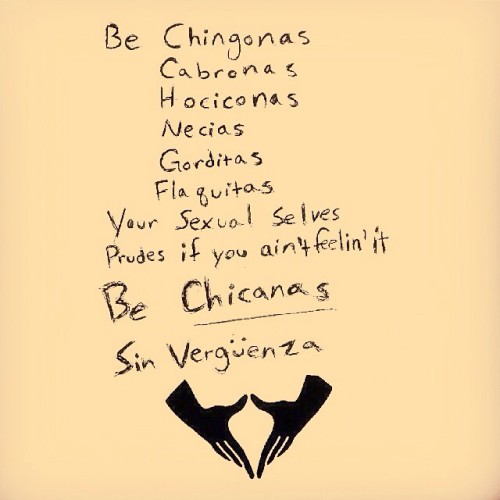 Be Chingonas
Cabronas
Hociconas
Necias
Gorditas
Flaquitas
Your Sexual Selves
Prudes if you ain't feelin' it
Be Chicanas
Sin Vergüenza